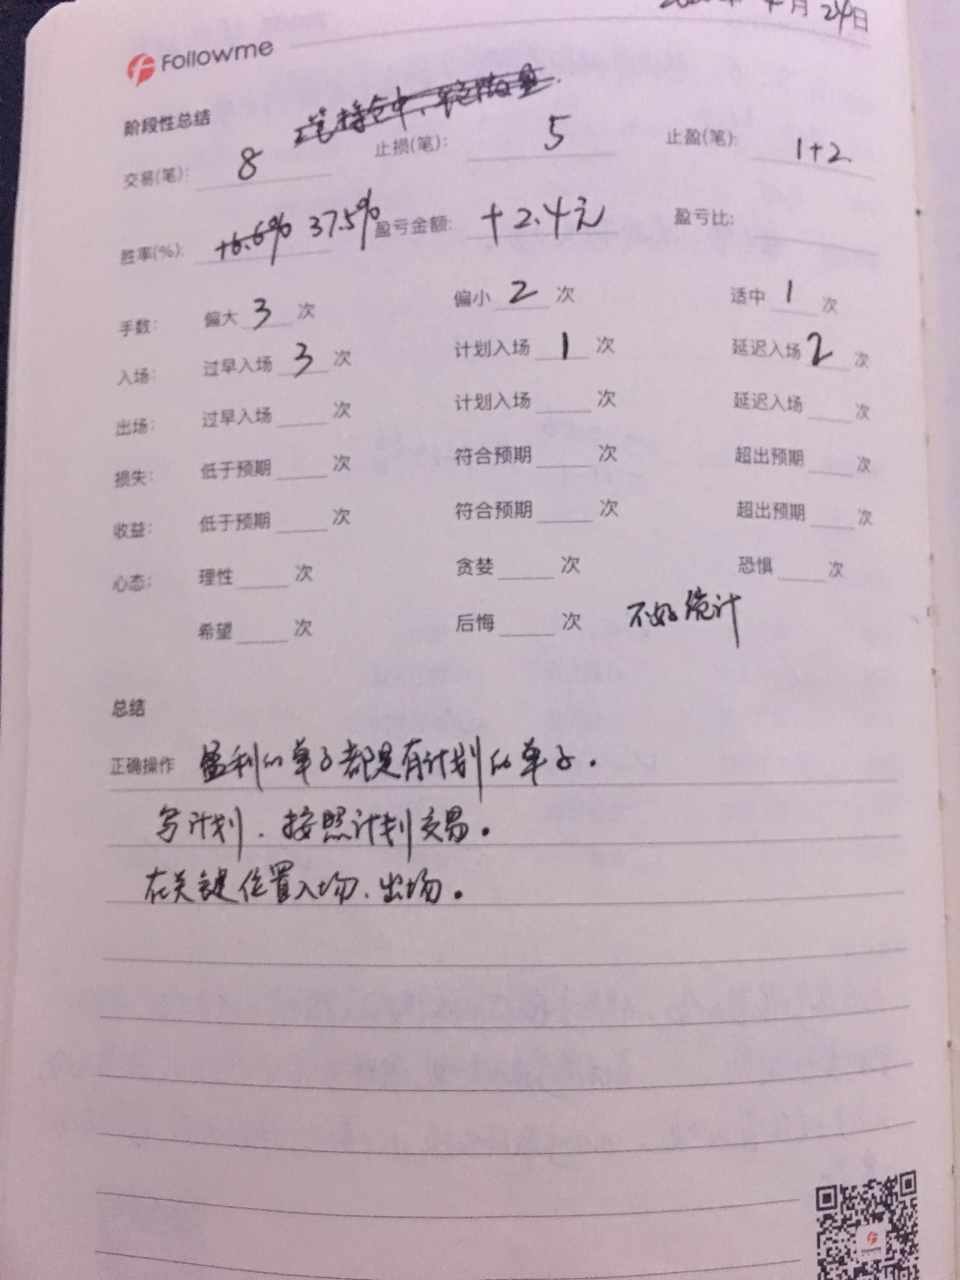 月24日
Followme
阶段性总结
交易(笔): 8 止损(笔): 5 止盈(笔): 1+2
胜率(%): +6.6% 37.5% 盈亏金额: +2.4元 盈亏比:
手数: 偏大 3 次 偏小 2 次 适中 1 次
入场: 过早入场 3 次 计划入场 1 次 延迟入场 2 次
出场: 过早入场 次 计划入场 次 延迟入场 次
损失: 低于预期 次 符合预期 次 超出预期 次
收益: 低于预期 次 符合预期 次 超出预期 次
心态: 理性 次 贪婪 次 恐惧 次
希望 次 后悔 次 不好统计
总结
正确操作 盈利的单子都是有计划的单子.
写计划、按照计划交易。
在关键位置入场、出场。